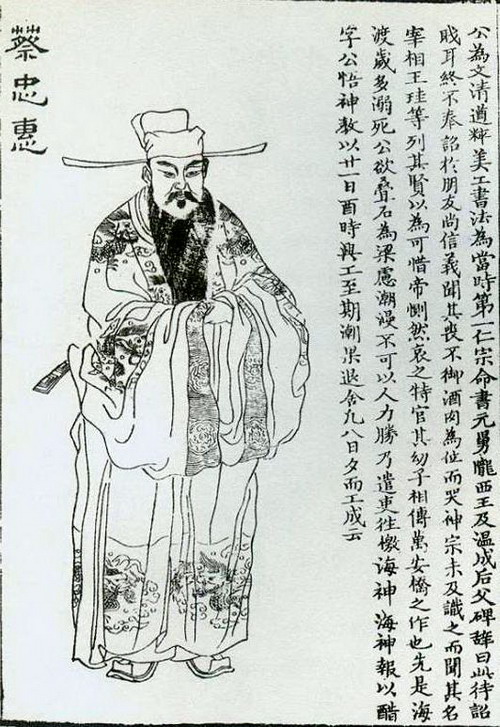 公為文清遒粹美工書法為當時第一仁宗命書元舅隴西王及温成后父碑辞曰此待詔
賤耳終不奉詔於朋友尚信義聞其喪不御酒肉為位而哭神宗未及識之而聞其名
宰相王珪等列其賢以為可惜帝惻然哀之特官其幼子相傳萬安橋之作也先是海
渡歲多溺死公欲疊石為梁慮潮漫不可以人力勝乃遣吏往檄海神海神報以醋
字公悟神教以廿一日酉時興工至期潮果退舍凡八日夕而工成云
蔡忠惠